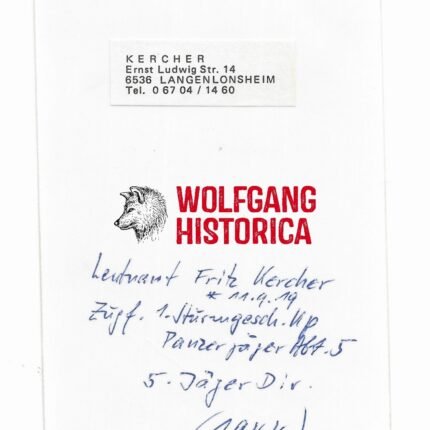 KERCHER
Ernst Ludwig Str. 14
6536 LANGENLONSHEIM
Tel. 0 67 04 / 14 60
WOLFGANG
HISTORICA
Leutnant Fritz Kercher
* 11.9.19
Zugf. 1. Sturmgesch. Kp
Panzerjäger Abt. 5
5. Jäger Div.